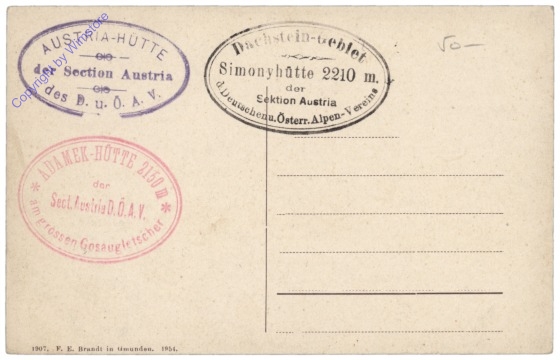 AUSTRIA-HÜTTE
der Section Austria
des D. u. Ö. A. V.
Copyright by Winstore
Dachstein-Gebiet
Simonyhütte 2210 m.
der
Sektion Austria
d. Deutschen u. Österr. Alpen-Vereins
50—
* ADAMEK-HÜTTE 2150 m *
der
Sect. Austria D. Ö. A. V.
am grossen Gosaugletscher
1907. F. E. Brandt in Gmunden. 1954.